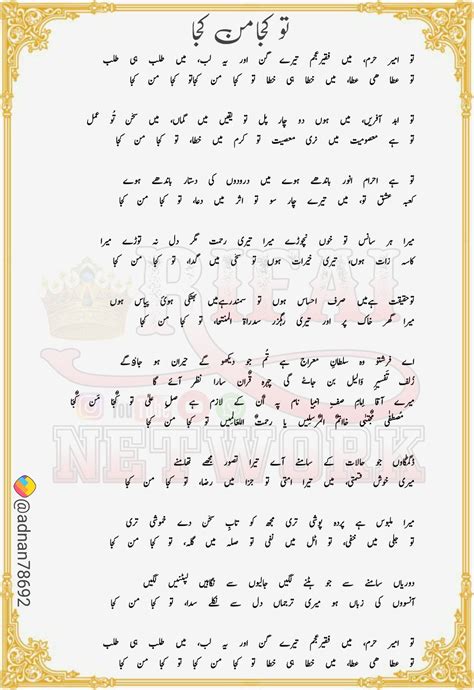 تو کجا من کجا
تو امیر حرم، میں فقیرِ عجم تیرے گن اور یہ لب، میں طلب ہی طلب
تو عطا ہی عطا، میں خطا ہی خطا تو کجا من کجا تو کجا من کجا
تو ابد آفریں، میں ہوں دو چار پل تو یقیں میں گماں، میں سخن تُو عمل
تو ہے معصومیت میں نری معصیت تو کرم میں خطا، تو کجا من کجا
تو ہے احرامِ انور باندھے ہوے میں درودوں کی دستار باندھے ہوے
کعبہ عشق تو، میں تیرے چار سو تو اثر میں دعا، تو کجا من کجا
میرا ہر سانس تو خوں نچوڑے میرا تیری رحمت مگر دل نہ توڑے میرا
کاسہ زات ہوں، تیری خیرات ہوں تو سخی میں گدا، تو کجا من کجا
توحقیقت ہےمیں صرف احساس ہوں تو سمندرہےمیں بھٹکی ہوئی پیاس ہوں
میرا گھر خاک پر اور تیری رہگزر سدراۃ المنتہا، تو کجا من کجا
اے فرشتو وہ سلطانِ معراج ہے تُم جو دیکھو گے حیران ہو جاؤگے
زُلف تفسیرِ والیل بن جائے گی چہرہ قُرآں سارا نظر آئے گا
میرے آقا امامِ صفِ انبیا نام پہ اُن کے لازم ہے صل علیٰ تو کُجا مَن کُجا
مُصطفیٰ مُجتبیٰ خاتم المُرسلیں یا رحمتٌ اللعالمیں تو کجا من کجا
ڈگمگاوں جو حالات کے سامنے آے تیرا تصور مجھے تھامنے
میری خوش قسمتی، میں تیرا امتی تو جزا میں رضا، تو کجا من کجا
میرا ملبوس ہے پردہ پوشی تری مجھ کو تابِ سخن دے خموشی تری
تو جلی میں خفی، تو اٹل میں نفی تو صلہ میں گلہ، تو کجا من کجا
دوریاں سامنے سے جو ہٹنے لگیں جالیوں سے نگاہیں لپٹنیں لگیں
آنسووں کی زباں ہو میری ترجماں دل سے نکلے سدا، تو کجا من کجا
تو امیر حرم، میں فقیرِ عجم تیرے گن اور یہ لب، میں طلب ہی طلب
تو عطا ہی عطا، میں خطا ہی خطا تو کجا من کجا تو کجا من کجا
RIFAI
NETWORK
@adnan78692